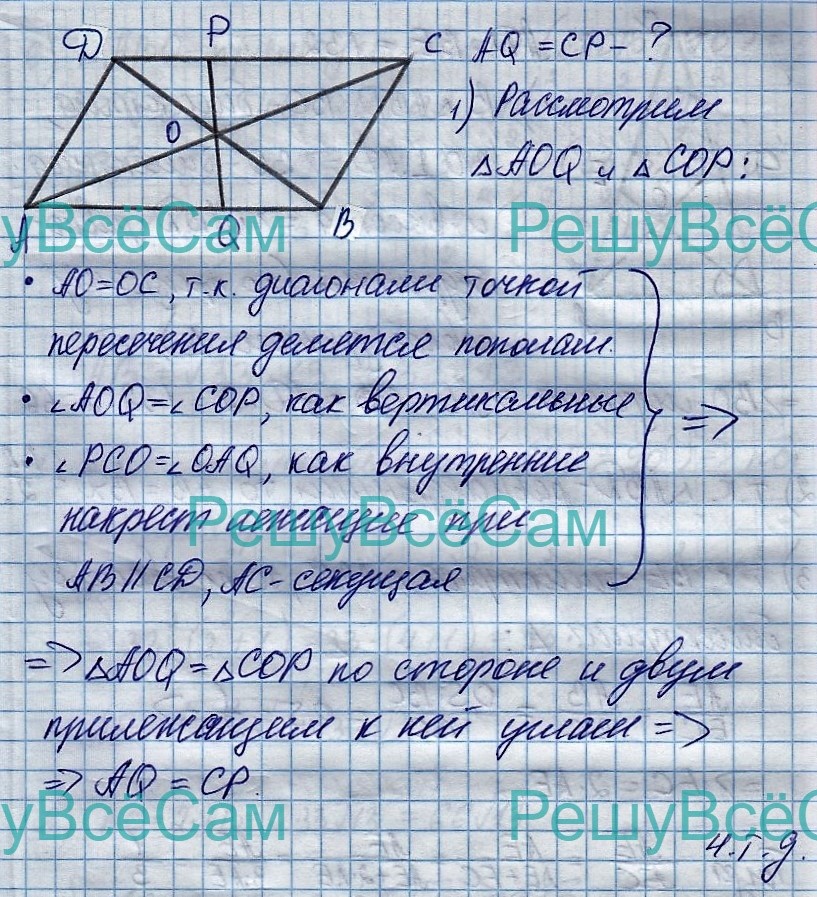 D P C AQ = CP - ?
1) Рассмотрим
O
△AOQ и △COP:
A Q B
РешуВсёСам РешуВсёСам
• AO=OC, т.к. диагонали точкой
пересечения делятся пополам.
• ∠AOQ=∠COP, как вертикальные
=>
• ∠PCO=∠OAQ, как внутренние
накрест лежащие при
РешуВсёСам
AB || CD, AC - секущая
=> △AOQ=△COP по стороне и двум
прилежащим к ней углам =>
=> AQ = CP.
РешуВсёСам РешуВсёСам
ч.т.д.